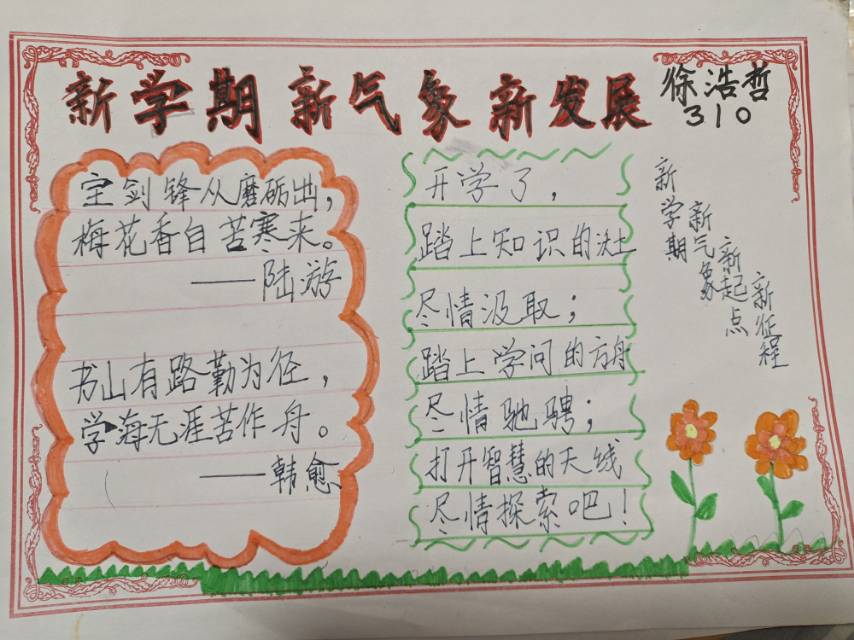 新学期新气象新发展
徐浩哲
310
宝剑锋从磨砺出，
梅花香自苦寒来。
——陆游
书山有路勤为径，
学海无涯苦作舟。
——韩愈
开学了，
踏上知识的沃土
尽情汲取；
踏上学问的方舟
尽情驰骋；
打开智慧的天线
尽情探索吧！
新学期
新气象
新起点
新征程